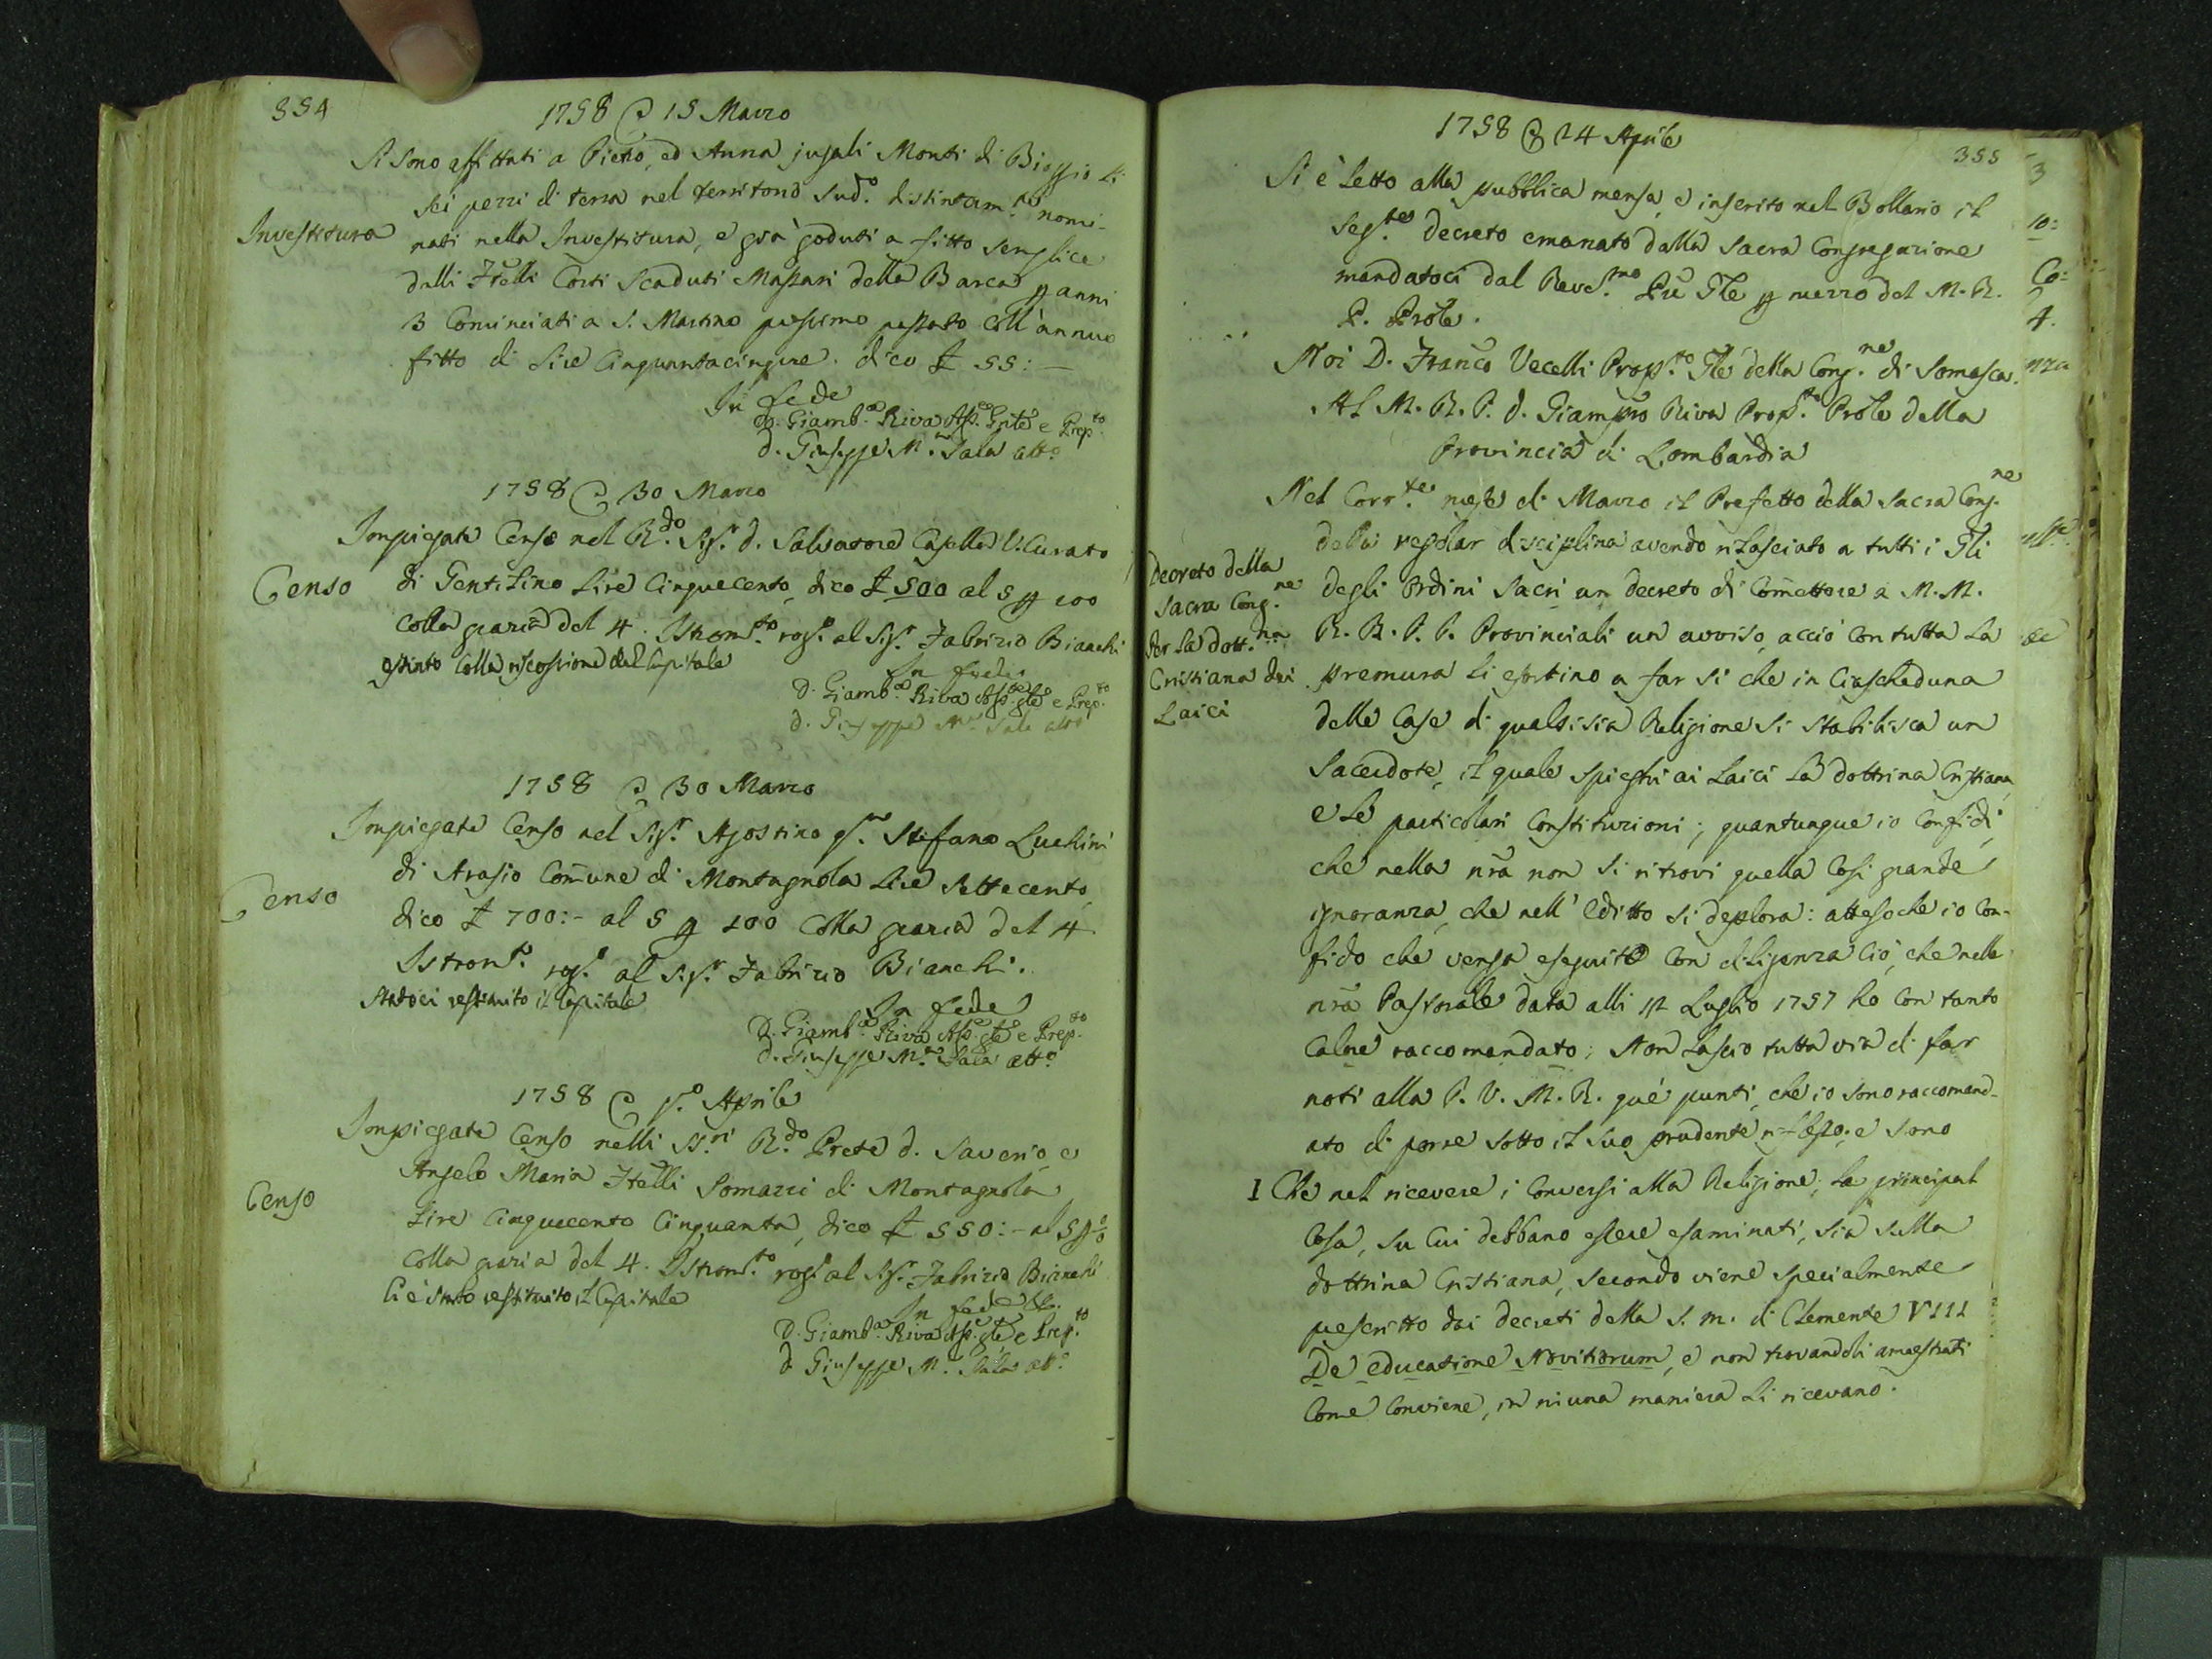 354
1758 @ 15 Marzo
Si sono affittati a Pietro, ed Anna jugali Monti di Bioggio li
sei pezzi di terra nel territorio sud.o distintam.te nomi-
Investitura
nati nella Investitura, e già goduti a fitto semplice
dalli Ftelli Corti scaduti Massari della Barca p anni
3 Cominciati a S. Martino prossimo passato coll'annuo
fitto di Lire Cinquantacinque. dico £ 55:—
In fede
D. Giamb.a Riva Ass.e Gnle e Prep.to
D. Giuseppe M.a Sala att.o
1758 @ 30 Marzo
Impiegate Censo nel R.do Sig.r d. Salvatore Casella V. Curato
Censo
di Gentilino Lire Cinquecento, dico £ 500 al 5 p 100
Colla grazia del 4. Istrom.to rog.o al Sig.r Fabrizio Bianchi
estinto colla riscossione del Capitale
In fede
D. Giamb.a Riva Ass.e Gle e Prep.to
d. Giuseppe M.a Sala att.o
1758 @ 30 Marzo
Impiegate Censo nel Sig.r Agostino q.m Stefano Luchini
di Arasio Comune di Montagnola Lire Settecento
Censo
dico £ 700:- al 5 p 100 Colla grazia del 4
Istrom.o rog.o al Sig.r Fabrizio Bianchi.
Statoci restituito il Capitale
In fede
D. Giamb.a Riva Ass.e Gle e Prep.to
d. Giuseppe M.a Sala att.o
1758 @ p.o Aprile
Impiegate Censo nelli SS.ri R.do Prete d. Saverio, e
Angelo Maria Ftelli Somazzi di Montagnola
Censo
Lire Cinquecento Cinquanta, dico £ 550:- al 5 p %
Colla grazia del 4. Istrom.to rog.o al Sig.r Fabrizio Bianchi
Ci è stato restituito il Capitale
In fede
D. Giamb.a Riva Ass.e Gle e Prep.to
d. Giuseppe M.a Sala att.o
1758 @ 24 Aprile
355
Si è letto alla pubblica mensa, e inserito nel Bollario il
seg.te decreto emanato dalla Sacra Congregazione
mandatoci dal Rev.mo Pre Gle p mezzo del M. R.
P. Prole.
Noi D. Franco Vecelli Prop.to Gle della Cong.ne di Somasca.
Al M. R. P. d. Giampro Riva Prop.to Prole della
Provincia di Lombardia
Nel Corr.te mese di Marzo il Prefetto della Sacra Cong.ne
della regolar disciplina avendo rilasciato a tutti i Gli
Decreto della
Sacra Cong.ne
per la dott.na
Cristiana dei
Laici
degli Ordini Sacri un decreto di Comettere a M. M.
R. R. P. P. Provinciali un avviso, acciò con tutta la
premura li esortino a far si che in Ciascheduna
delle Case di qualsisia Religione si stabilisca un
Sacerdote, il quale spieghi ai Laici la dottrina Cristiana,
e le particolari Constituzioni; quantunque io Confidi,
che nella nra non si ritrovi quella Così grande
ignoranza, che nell' Editto si deplora: attesoche io Con-
fido che venga eseguito Con diligenza Ciò, che nella
nra Pastorale data alli 12 Luglio 1757 ho Con tanto
Calore raccomandato; Non lascio tutta via di far
noti alla P. V. M. R. què punti, che io sono raccomand-
ato di porre sotto il suo prudente riflesso, e sono
1 Che nel ricevere i Conversi alla Religione, la principal
Cosa, su Cui debbano essere esaminati, sia sulla
dottrina Cristiana, secondo viene specialmente
prescritto dai decreti della S. m. di Clemente VIII
De educatione Novitiorum, e non trovandoli amaestrati
Come Conviene, in niuna maniera li ricevano.